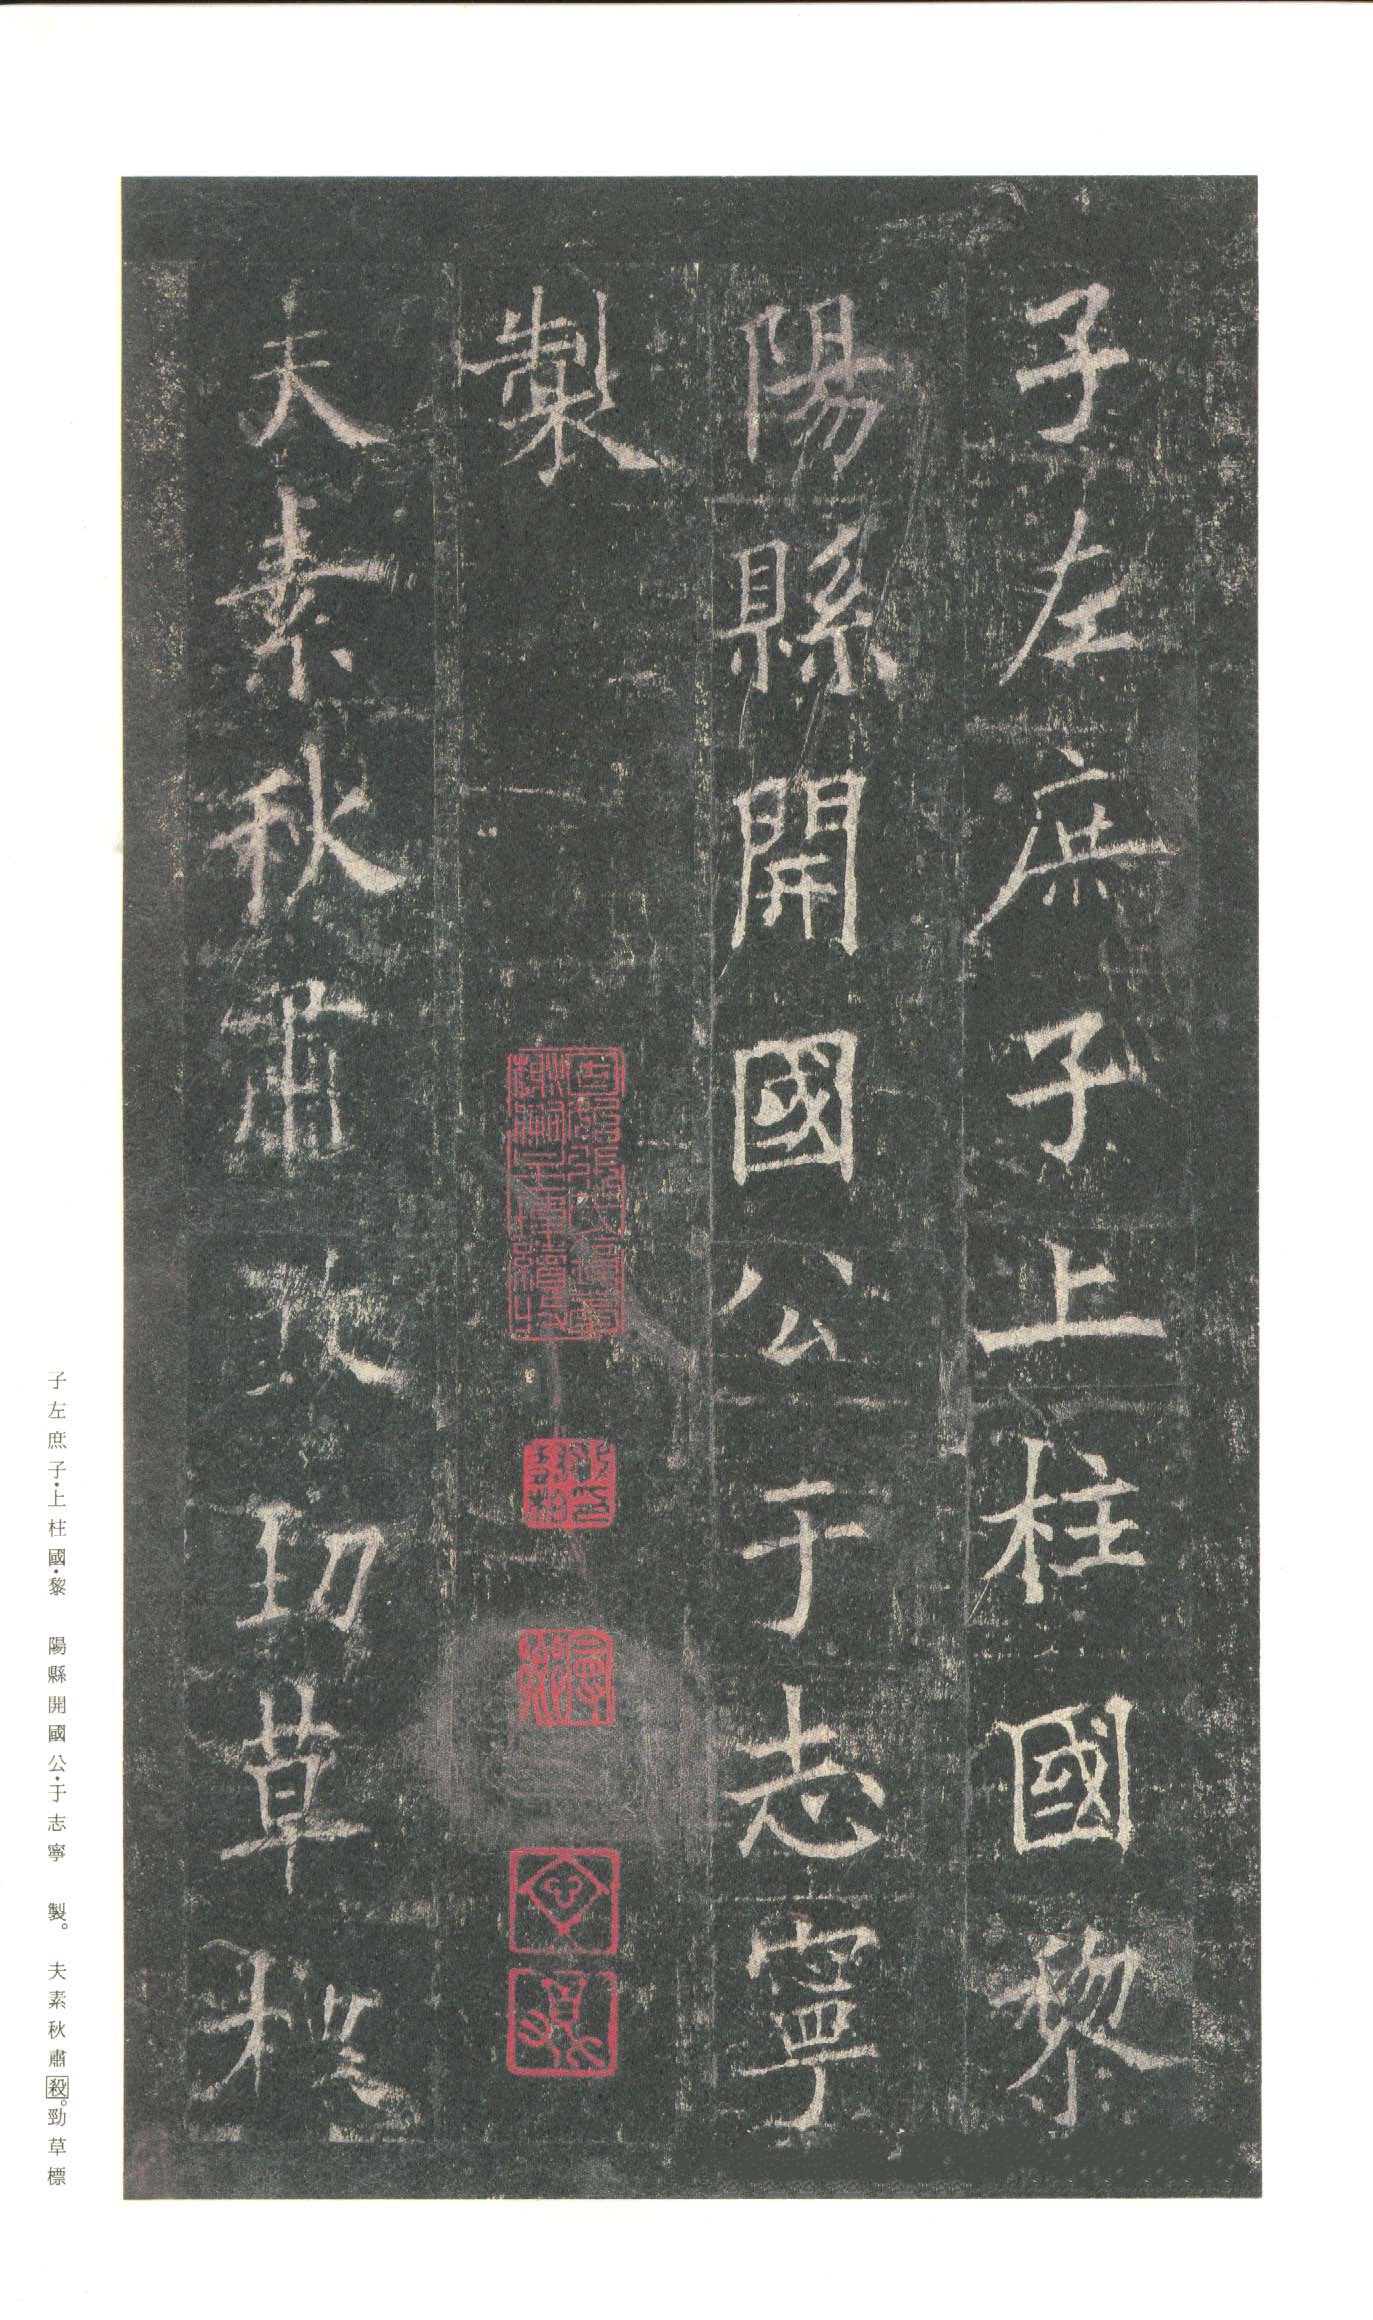 子左庶子上柱國黎
陽縣開國公于志寧
製
夫素秋肅勁草標
子左庶子·上柱國·黎 陽縣開國公·于志寧 製。 夫素秋肅殺。勁草標